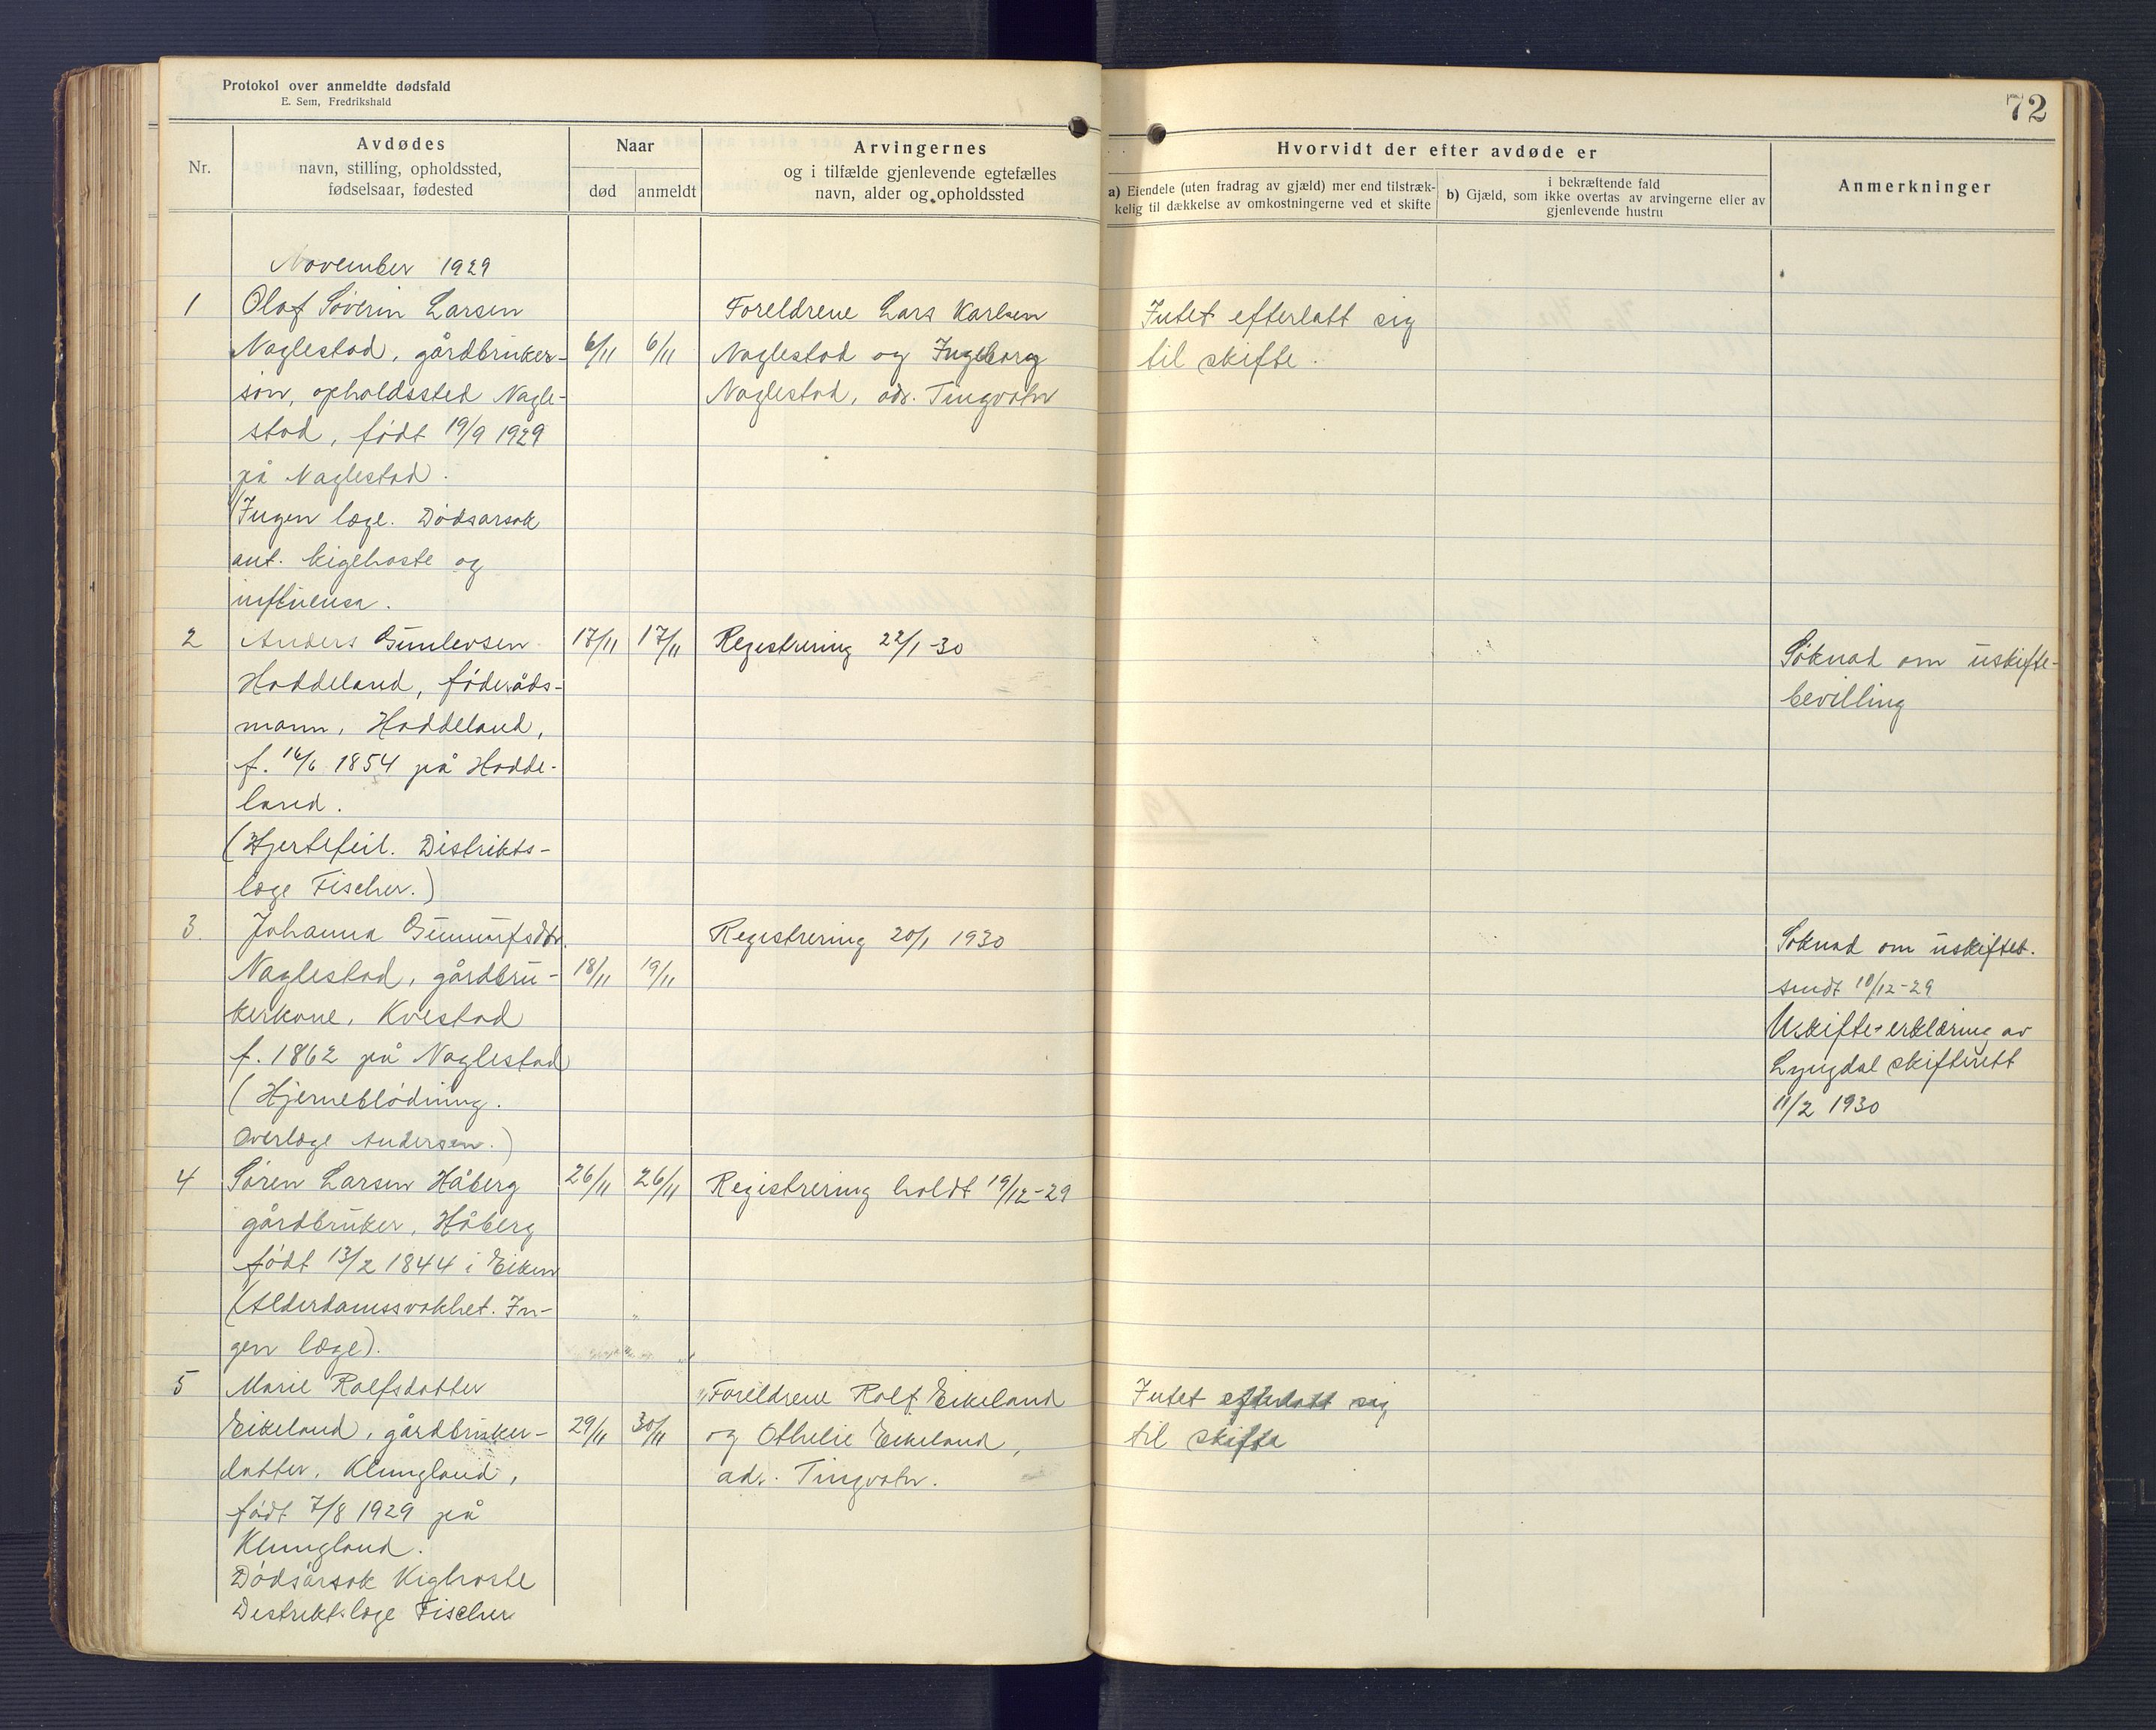 Protokol over anmeldte dødsfald
E. Sem, Fredrikshald
72
Nr.
Avdødes
navn, stilling, opholdssted,
fødselsaar, fødested
Naar
død
anmeldt
Arvingernes
og i tilfælde gjenlevende egtefælles
navn, alder og opholdssted
Hvorvidt der efter avdøde er
a) Eiendele (uten fradrag av gjæld) mer end tilstræk-
kelig til dækkelse av omkostningerne ved et skifte
i bekræftende fald
b) Gjæld, som ikke overtas av arvingerne eller av
gjenlevende hustru
Anmerkninger
November 1929
1
Olaf Søverin Larsen
Naglestad, gårdbruker-
søn, opholdssted Nagle-
stad, født 19/9 1929
på Naglestad.
(Ingen læge. Dødsarsak
ant. kigehoste og
influensa.
6/11
6/11
Foreldrene Lars Karlsen
Naglestad og Ingeborg
Naglestad, adr. Tingvatn
Intet efterlatt sig
til skifte.
2
Anders Gunlevsen
Haddeland, føderåds-
mann, Haddeland,
f. 16/6 1854 på Hadde-
land.
(Hjertefeil. Distrikts-
læge Fischer.)
17/11
17/11
Registrering 22/1-30
Søknad om uskifte-
bevilling
3.
Johanna Gunnufsdtr.
Naglestad, gårdbru-
kerkone, Kvestad
f. 1862 på Naglestad
(Hjerneblødning.
Overlæge Andersen.)
18/11
19/11
Registrering 20/1 1930
Søknad om uskifteb.
sendt 10/12-29
Uskifte-erklæring av
Lyngdal skifterett
11/2 1930
4
Søren Larsen Håberg
gårdbruker, Håberg
født 13/2 1844 i Eiken
(Alderdamssvakhet. In-
gen læge).
26/11
26/11
Registrering holdt 19/12-29
5
Marie Rolfsdatter
Eikeland, gårdbruker-
datter, Klungland,
født 7/8 1929 på
Klungland.
Dødsårsak Kighoste
Distriktslæge Fischer
29/11
30/11
Foreldrene Rolf Eikeland
og Othelie Eikeland,
adr. Tingvatn.
Intet efterlatt sig
til skifte